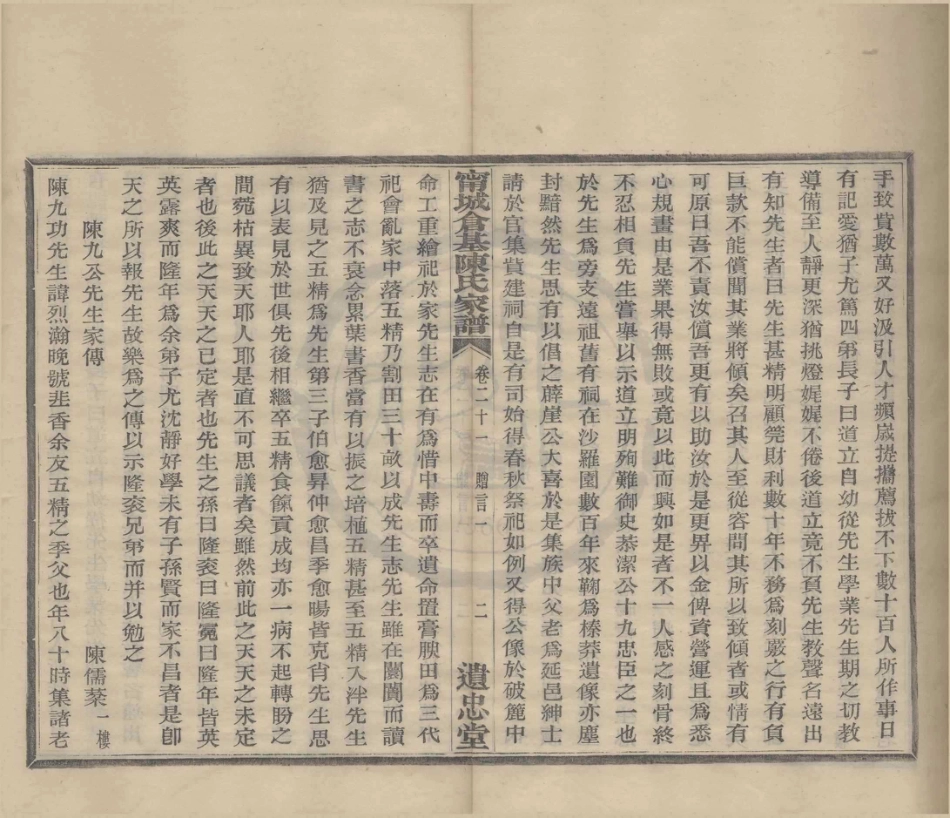 手致貲數萬又好汲引人才頻歲提攜薦拔不下數十百人所作事日
有記愛猶子尤篤四弟長子曰道立自幼從先生學業先生期之切教
導備至人靜更深猶挑燈娓娓不倦後道立竟不負先生教聲名遠出
有知先生者曰先生甚精明顧筦財利數十年不務爲刻嚴之行有負
巨款不能償聞其業將傾矣召其人至從容問其所以致傾者或情有
可原曰吾不責汝償吾更有以助汝於是更畀以金俾資營運且爲悉
心規畫由是業果得無敗或竟以此而興如是者不一人感之刻骨終
不忍相負先生嘗舉以示道立明殉難御史恭潔公十九忠臣之一也
於先生爲旁支遠祖舊有祠在沙羅園數百年來鞠爲榛莽遺像亦塵
封黯然先生思有以倡之薜崖公大喜於是集族中父老爲延邑紳士
請於官集貲建祠自是有司始得春秋祭祀如例又得公像於破簏中
甯城倉基陳氏家譜 卷二十一 贈言一 二 遺忠堂
命工重繪祀於家先生志在有爲惜中壽而卒遺命置膏腴田爲三代
祀會亂家中落五精乃割田三十畝以成先生志先生雖在闤闠而讀
書之志不衰念累葉書香當有以振之培植五精甚至五精入泮先生
猶及見之五精爲先生第三子伯愈昇仲愈昌季愈暘皆克肖先生思
有以表見於世俱先後相繼卒五精食餼貢成均亦一病不起轉盼之
間菀枯異致天耶人耶是直不可思議者矣雖然前此之天天之未定
者也後此之天天之已定者也先生之孫曰隆袞曰隆冕曰隆年皆英
英露爽而隆年爲余弟子尤沈靜好學未有子孫賢而家不昌者是卽
天之所以報先生故樂爲之傳以示隆袞兄弟而并以勉之
陳九公先生家傳 陳儒棻 一樓
陳九功先生諱烈瀚晚號韭香余友五精之季父也年八十時集諸老